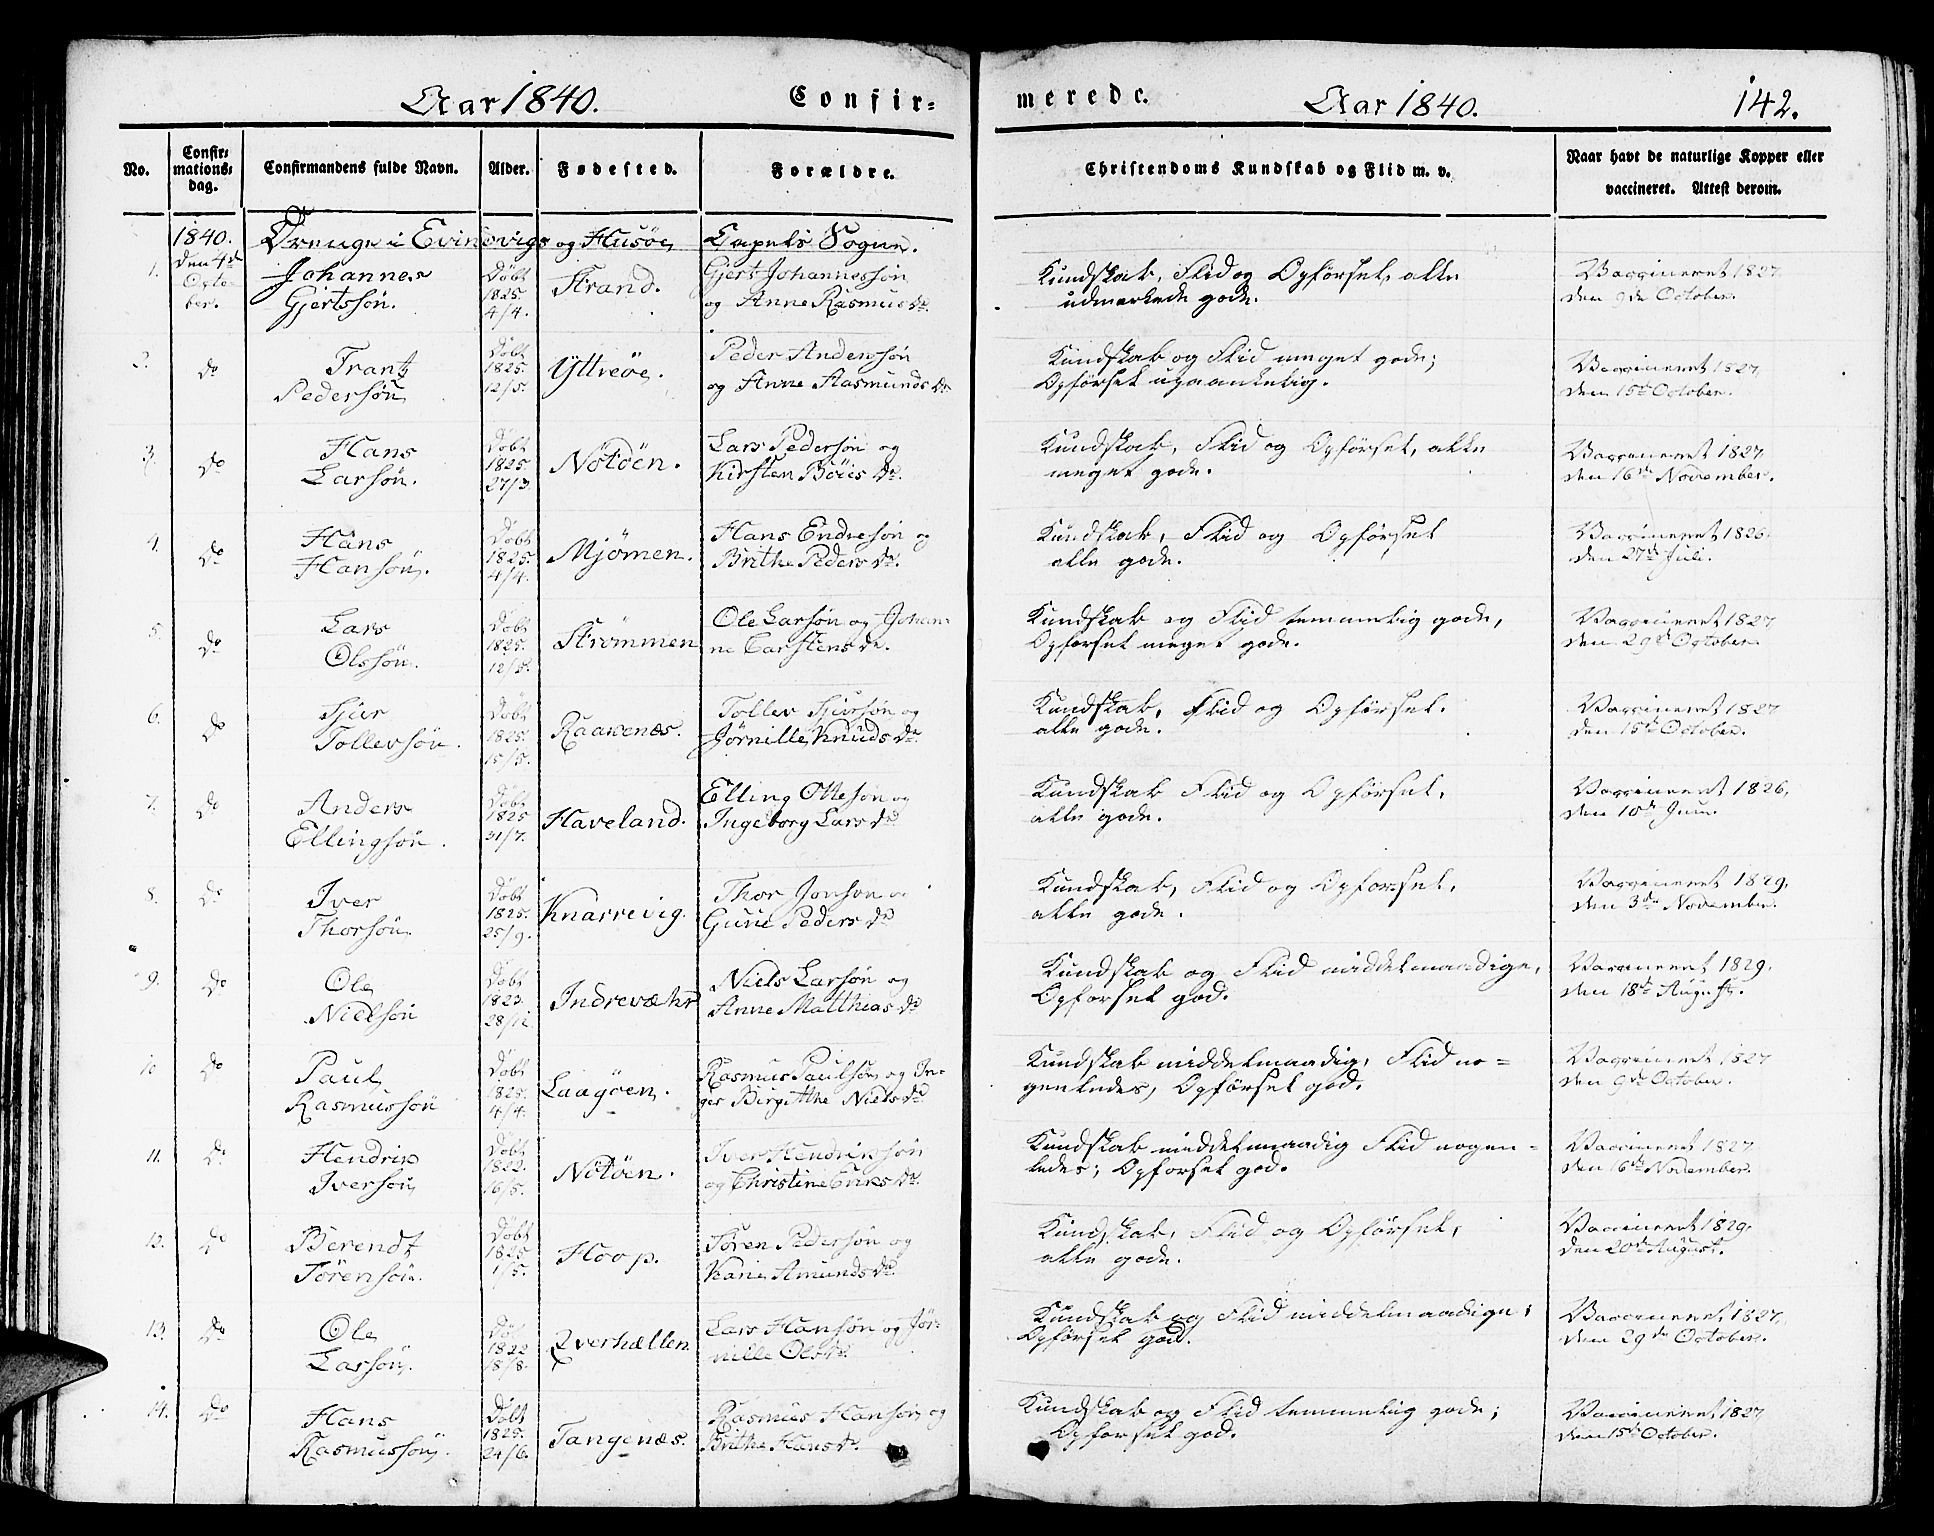 Aar 1840.
Confir-
merede.
Aar 1840.
142.
No.
Confir-
mations-
dag.
Confirmandens fulde Navn.
Alder.
Fødested.
Forældre.
Christendoms Kundskab og Flid m. v.
Naar havt de naturlige Kopper eller
vaccineret. Attest derom.
1840. Drenge i Evindvigs og Husøe Capels Sogne.
1.
den 4de
Octo-
ber.
Johannes
Gjertssøn.
Døbt
1825.
4/4.
Strand.
Gjert Johannessøn
og Anne Rasmusdr.
Kundskab, Flid og Opførsel, alle
udmærkede gode.
Vaccineret 1827.
den 9de October.
2.
do
Frantz
Pedersøn
Døbt
1825.
12/5.
Yttreøe.
Peder Anderssøn
og Anne Aasmundsdr
Kundskab og Flid meget gode;
Opførsel upaaankelig.
Vaccineret 1827,
den 15de October.
3.
do
Hans
Larsøn.
Døbt
1825.
27/3.
Notøen.
Lars Pedersøn og
Kirsten Böies dr.
Kundskab, Flid og Opførsel, alle
meget gode.
Vaccineret 1827
den 16de November.
4.
do
Hans
Hansøn.
Døbt
1825.
4/4.
Mjømen.
Hans Endresøn og
Brithe Pedersdr.
Kundskab, Flid og Opførsel
alle gode.
Vaccineret 1826.
den 27de Juli.
5.
do
Lars
Olssøn.
Døbt
1825.
12/5.
Strømmen
Ole Larsøn og Johan-
ne Carstensdr.
Kundskab og Flid temmelig gode,
Opførsel meget gode.
Vaccineret 1827
den 29de October.
6.
do
Sjur
Tollevsøn.
Døbt
1825.
15/5.
Raakenæs.
Tollev Sjursøn og
Jørnille Knudsdr.
Kundskab, Flid og Opførsel.
alle gode.
Vaccineret 1827
den 15de October.
7.
do
Anders
Ellingsøn.
Døbt
1825
31/7.
Haveland.
Elling Ottesøn og
Ingeborg Larsdr
Kundskab Flid og Opførsel,
alle gode.
Vaccineret 1826,
den 10de Juni.
8.
do
Iver
Thorsøn
Døbt
1825.
25/9.
Knarrevig.
Thor Jonsøn og
Gurie Pedersdr
Kundskab, Flid og Opførsel,
alle gode.
Vaccineret 1829,
den 3die November.
9.
do
Ole
Nielsøn
Døbt
1823.
28/12.
Indrevæhr
Niels Larsøn og
Anne Matthiasdr
Kundskab og Flid middelmaadige,
Opførsel god.
Vaccineret 1829.
den 18de August.
10
do
Paul
Rasmussøn
Døbt
1825.
4/4.
Laagøen.
Rasmus Paulsøn og In-
ger Birgitthe Nielsdr
Kundskab middelmaadig, Flid no-
genledes, Opførsel god.
Vaccineret 1827
den 9de October.
11.
do
Hendrik
Iversøn
Døbt
1822.
16/5.
Notøen.
Iver Hendriksøn
og Christine Eriksdr.
Kundskab middelmaadig Flid nogen-
ledes; Opførsel god.
Vaccineret 1827.
den 16de November.
12.
do
Berendt
Sörensön.
Døbt
1825
1/5.
Hoop.
Sören Pedersön og
Karie Amundsdr.
Kundskab, Flid og Opførsel,
alle gode.
Vaccineret 1829.
den 20de August.
13.
do
Ole
Larsøn.
Døbt
1822
18/8.
Qverhællen
Lars Hansøn og Jør-
nille Olsdr.
Kundskab og Flid middelmaadige;
Opførsel god.
Vaccineret 1827.
den 29de October.
14.
do
Hans
Rasmussøn.
Døbt
1825.
24/6.
Tangenæs.
Rasmus Hansøn og
Brithe Hansdr.
Kundskab og Flid temmelig gode;
Opførsel god.
Vaccineret 1827
den 15de October.